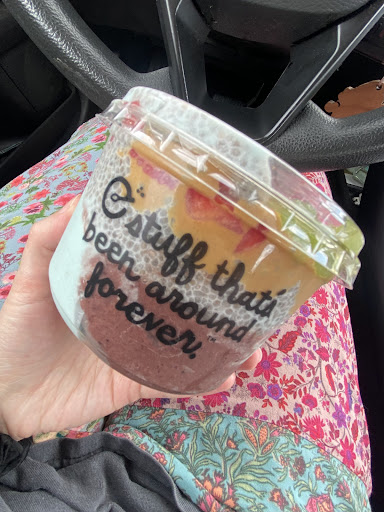 "stuff that's
been around
forever."